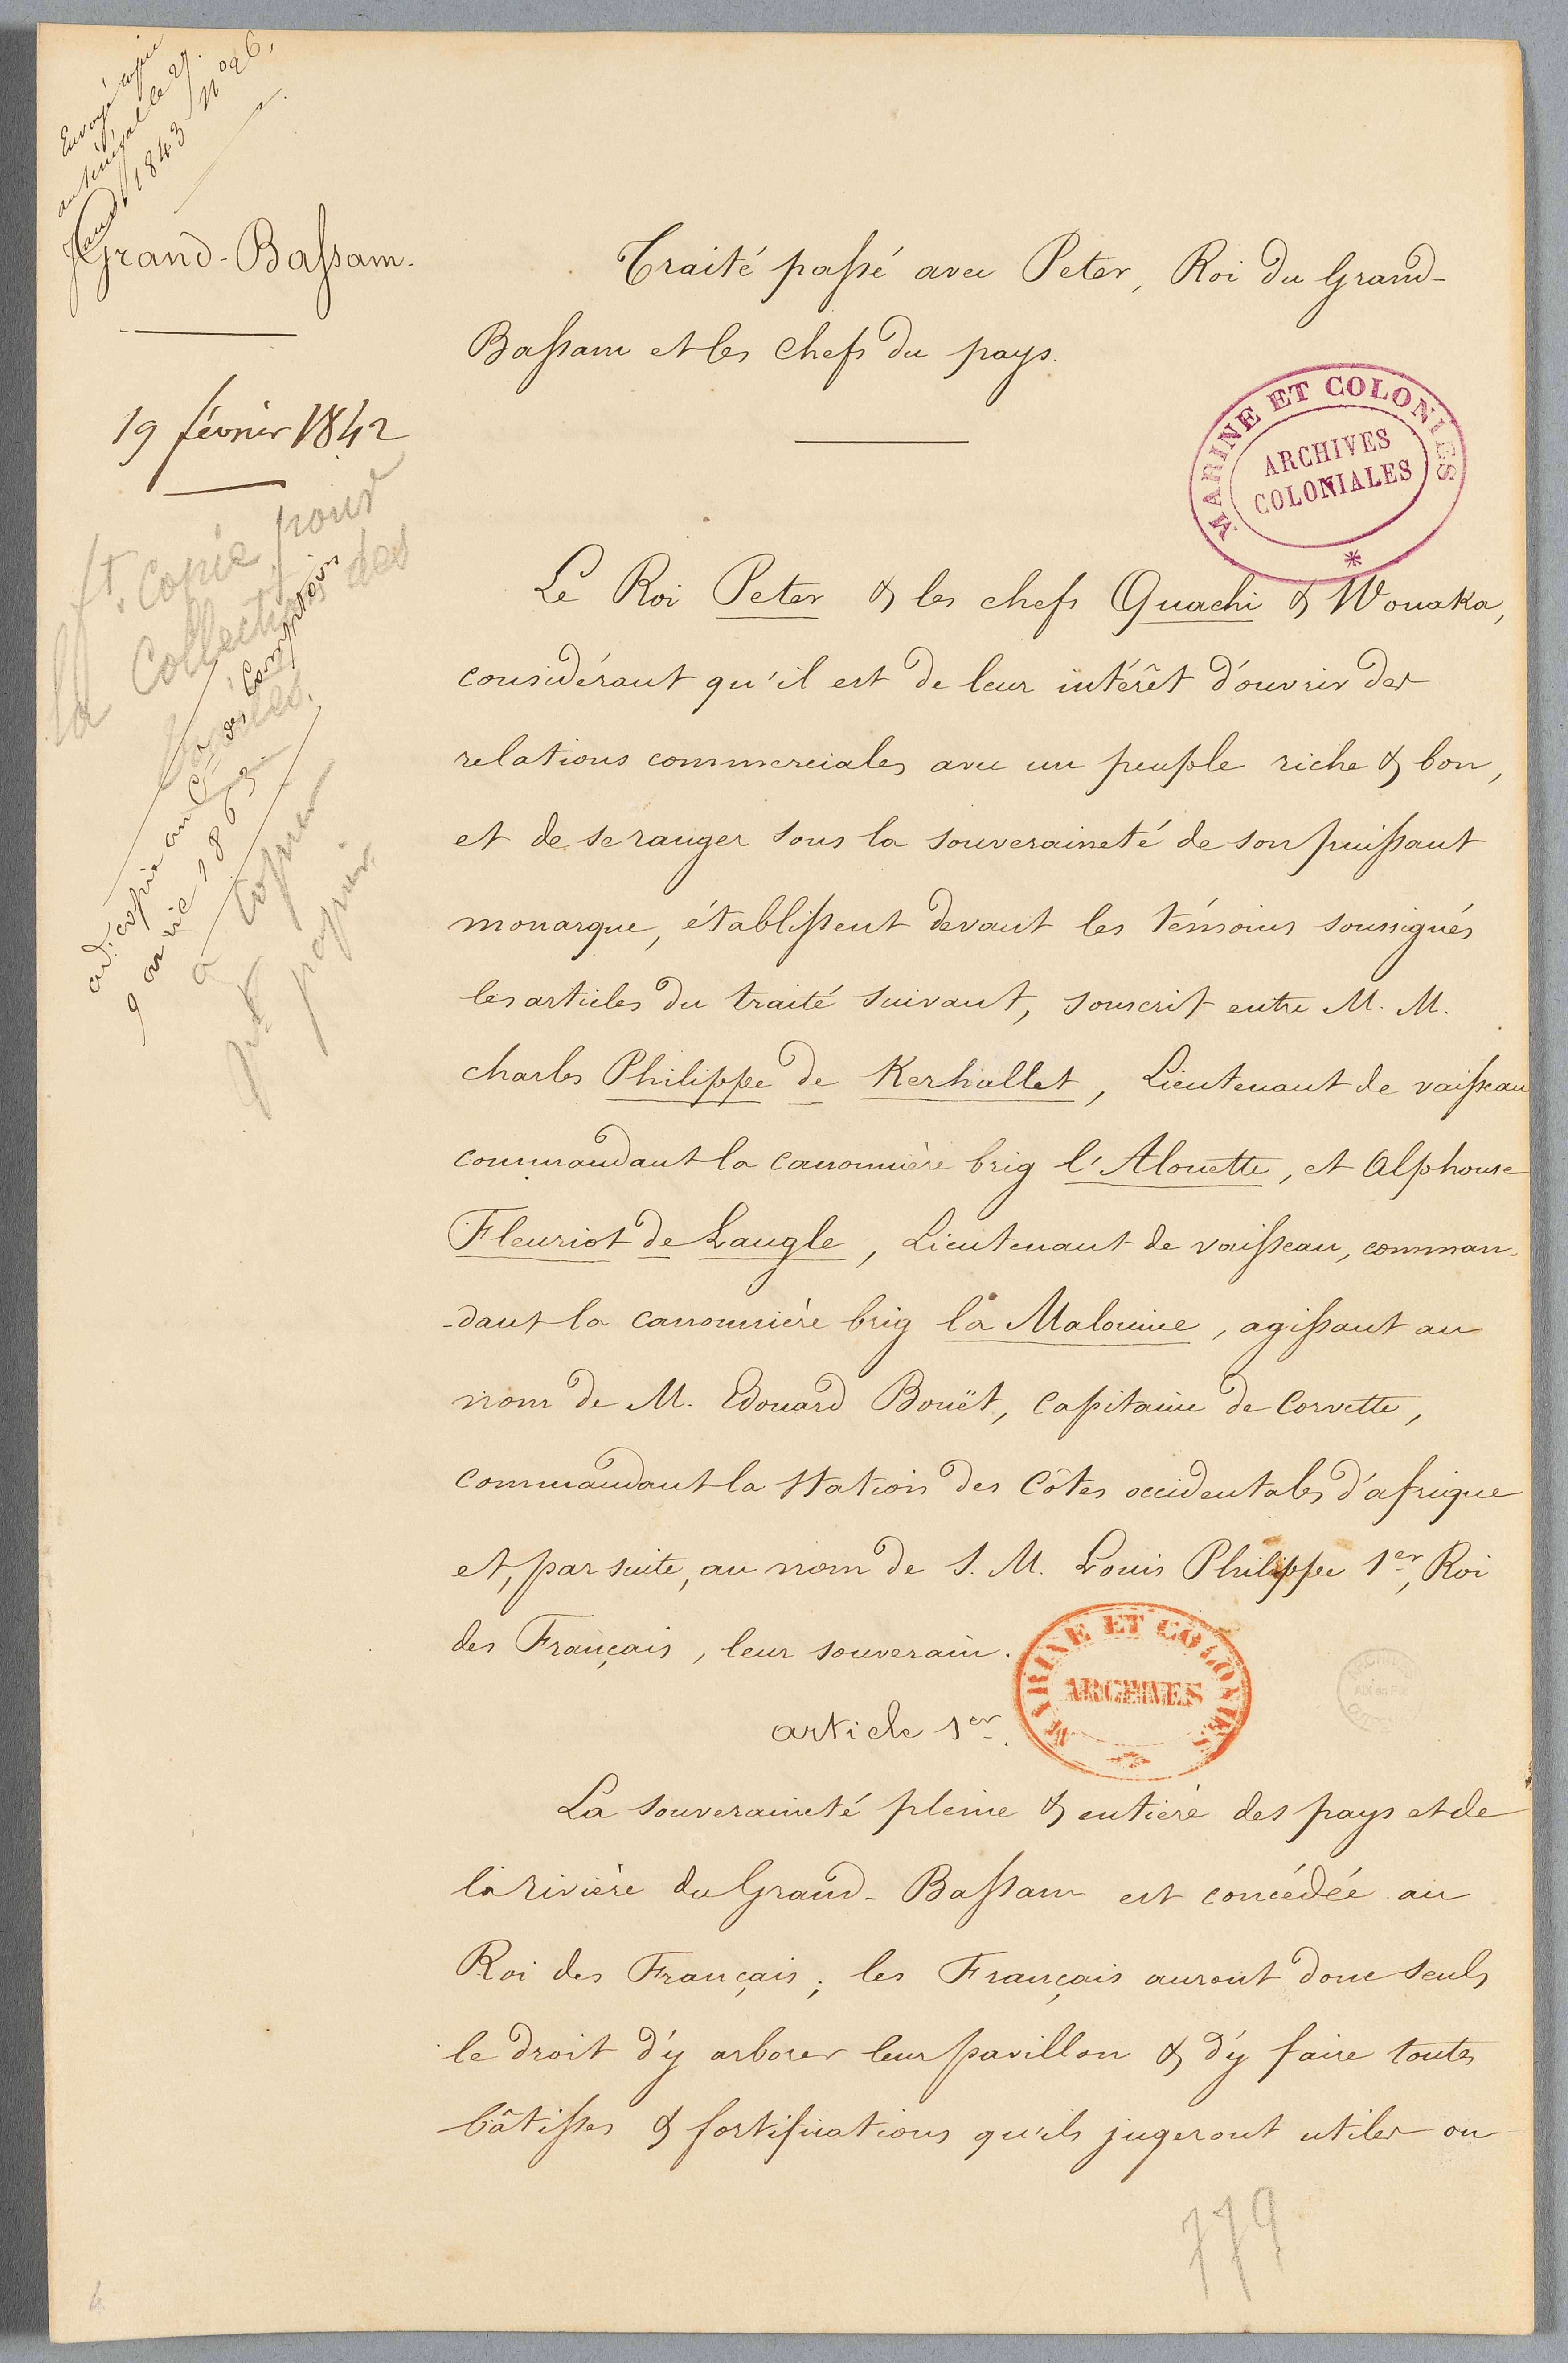 Envoyé copie
au Sénégal le 27.
1843 N° 26.
Grand-Bassam.
19 février 1842
ft. copie pour
la Collection des
ad. copie au Cte des Comptoirs
9 avric 1863
à copier
papier
Traité passé avec Peter, Roi du Grand-
Bassam et les chefs du pays.
MARINE ET COLONIES
ARCHIVES
COLONIALES
Le Roi Peter & les chefs Quachi & Wouaka,
considérant qu'il est de leur intérêt d'ouvrir des
relations commerciales avec un peuple riche & bon,
et de se ranger sous la souveraineté de son puissant
monarque, établissent devant les témoins soussignés
les articles du traité suivant, souscrit entre M. M.
charles Philippe de Kerhallet, Lieutenant de vaisseau
commandant la canonnière brig l'Alouette, et Alphonse
Fleuriot de Langle, Lieutenant de vaisseau, comman-
-dant la canonnière brig la Malouine, agissant au
nom de M. Edouard Bouët, capitaine de Corvette,
commandant la station des côtes occidentales d'afrique
et, par suite, au nom de S. M. Louis Philippe 1er, Roi
des Français, leur souverain.
MARINE ET COLONIES
ARCHIVES
article 1er.
La souveraineté pleine & entière des pays et de
la rivière du Grand-Bassam est concédée au
Roi des Français; les Français auront donc seuls
le droit d'y arborer leur pavillon & d'y faire toutes
bâtisses & fortifications qu'ils jugeront utiles ou
779
4